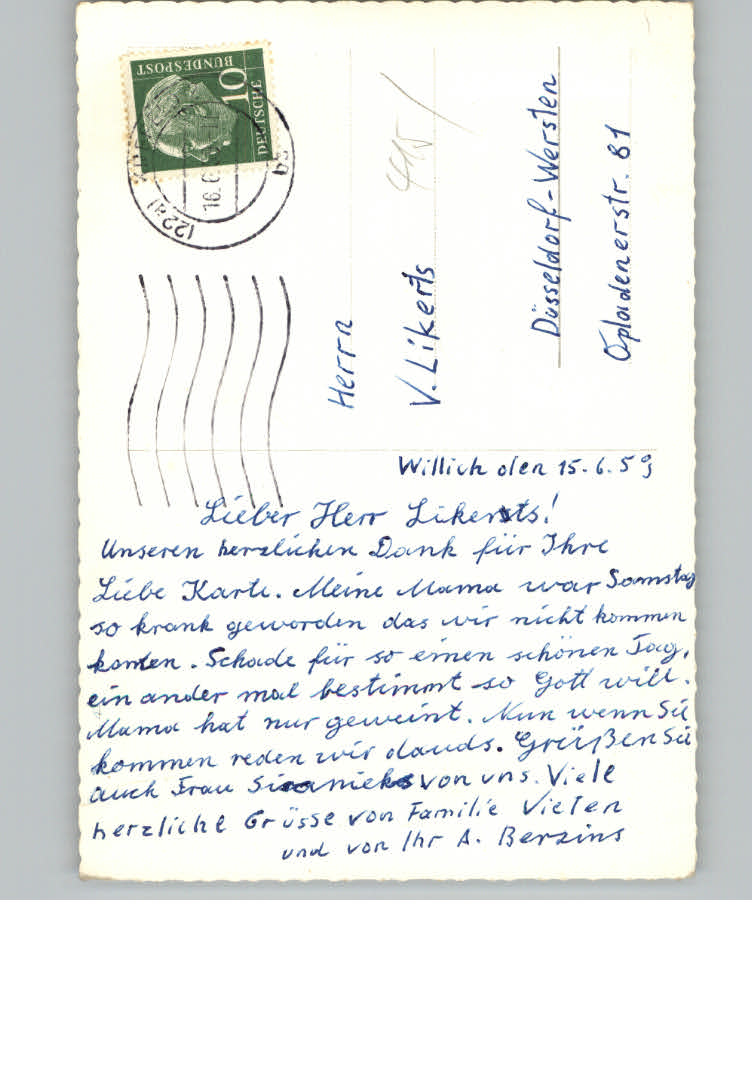 DEUTSCHE
BUNDESPOST
10
(22a)
16.6.
bc
415
Herrn
V. Likerts
Düsseldorf-Wersten
Opladenerstr. 81
Willich den 15.6.59
Lieber Herr Likerts!
Unseren herzlichen Dank für Ihre
Liebe Karte. Meine Mama war Samstag
so krank geworden das wir nicht kommen
konten. Schade für so einen schönen Tag,
ein ander mal bestimmt so Gott will.
Mama hat nur geweint. Nun wenn Sie
kommen reden wir davds. Grüßen Sie
auch Frau von uns. Viele
herzliche Grüsse von Familie Vielen
und von Ihr A. Berzins